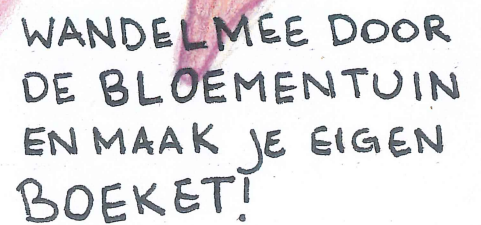 WANDEL MEE DOOR
DE BLOEMENTUIN
EN MAAK JE EIGEN
BOEKET!